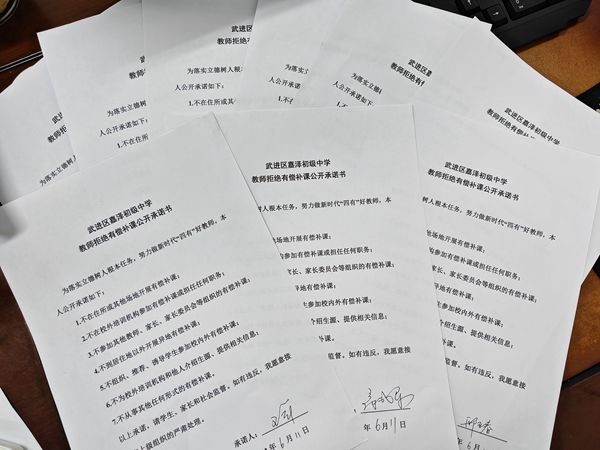 武进区嘉泽初级中学
教师拒绝有偿补课公开承诺书
为落实立德树人根本任务，努力做新时代“四有”好教师，本
人公开承诺如下：
1.不在住所或其他场地开展有偿补课；
2.不在校外培训机构参加有偿补课或担任任何职务；
3.不参加其他教师、家长、家长委员会等组织的有偿补课；
4.不到居住地以外开展异地有偿补课；
5.不组织、推荐、诱导学生参加校内外有偿补课；
6.不为校外培训机构和他人介绍生源、提供相关信息；
7.不从事其他任何形式的有偿补课。
以上承诺，请学生、家长和社会监督。如有违反，我愿意接
上级组织的严肃处理。
承诺人：
年 6月 11日
武进区嘉泽初级中学
教师拒绝有偿补课公开承诺书
树人根本任务，努力做新时代“四有”好教师，本
他场地开展有偿补课；
构参加有偿补课或担任任何职务；
家长、家长委员会等组织的有偿补课；
异地有偿补课；
生参加校内外有偿补课；
介绍生源、提供相关信息；
补课。
监督。如有违反，我愿意接
年 6月 11日
武进区嘉泽初级中学
教师拒绝有偿补课公开承诺书
根本任务，努力做新时代“四有”好教师，本
场地开展有偿补课；
参加有偿补课或担任任何职务；
长、家长委员会等组织的有偿补课；
地有偿补课；
参加校内外有偿补课；
绍生源、提供相关信息；
课。
督。如有违反，我愿意接
年 6月 11日
武进区
教师拒绝有
为落实立德树人
人公开承诺如下：
1.不在住所
武进区嘉
教师拒绝有偿
为落实立德树人根
人公开承诺如下：
1.不在住所或其
武进区嘉
教师拒绝有偿
为落实立德树人根
人公开承诺如下：
1.不在
武进区嘉
教师拒绝有偿
为落实立德
人公开承诺如下
武进区嘉泽初级中学
教师拒绝有偿补课公开承诺书